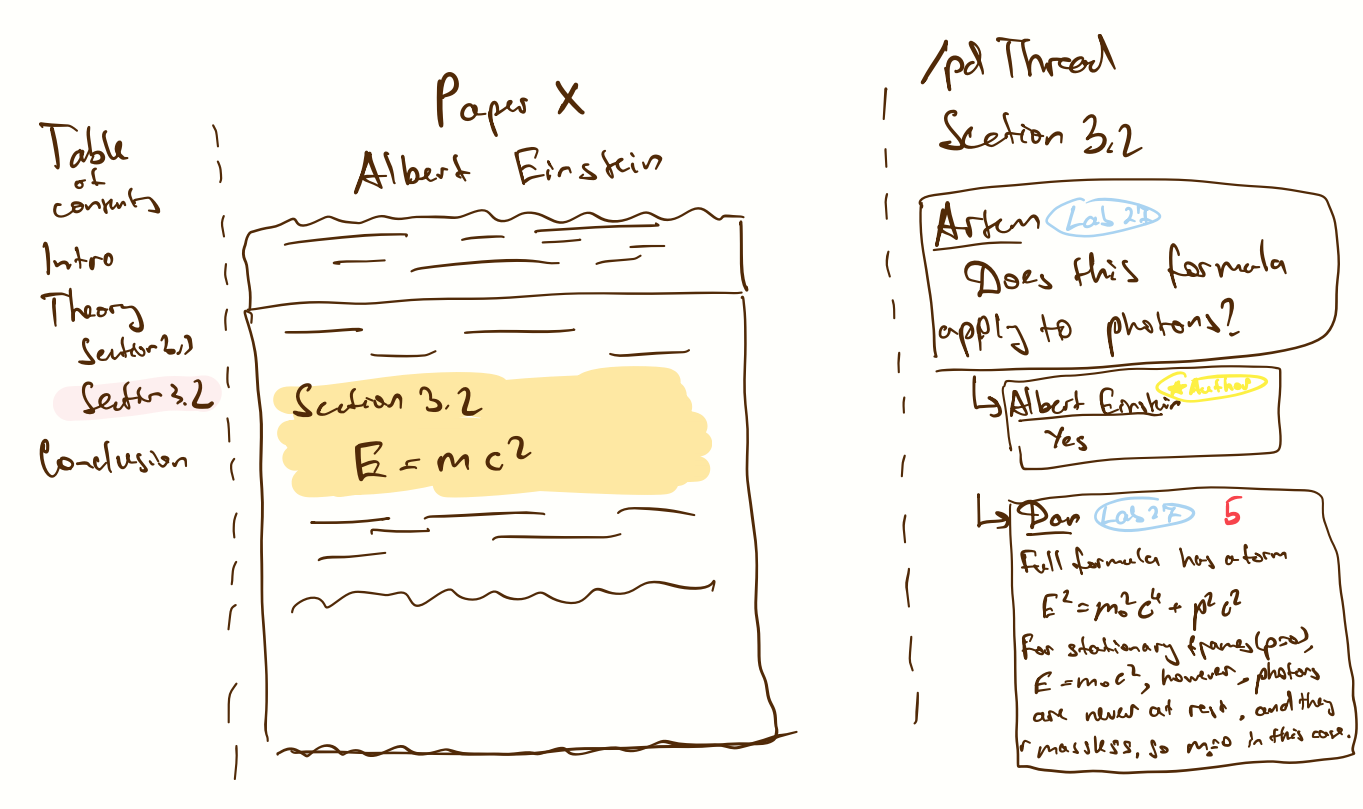 Table
of
contents
Intro
Theory
Section 3.1
Section 3.2
Conclusion
Paper X
Albert Einstein
Section 3.2
E = mc²
/pd Thread
Section 3.2
Artem Lab 27
Does this formula
apply to photons?
Albert Einstein ★Author
Yes
Dan Lab 27 5
Full formula has a form
E² = m₀²c⁴ + p²c²
For stationary frames (p=0),
E = m₀c², however, photons
are never at rest, and they
r massless, so m₀=0 in this case.